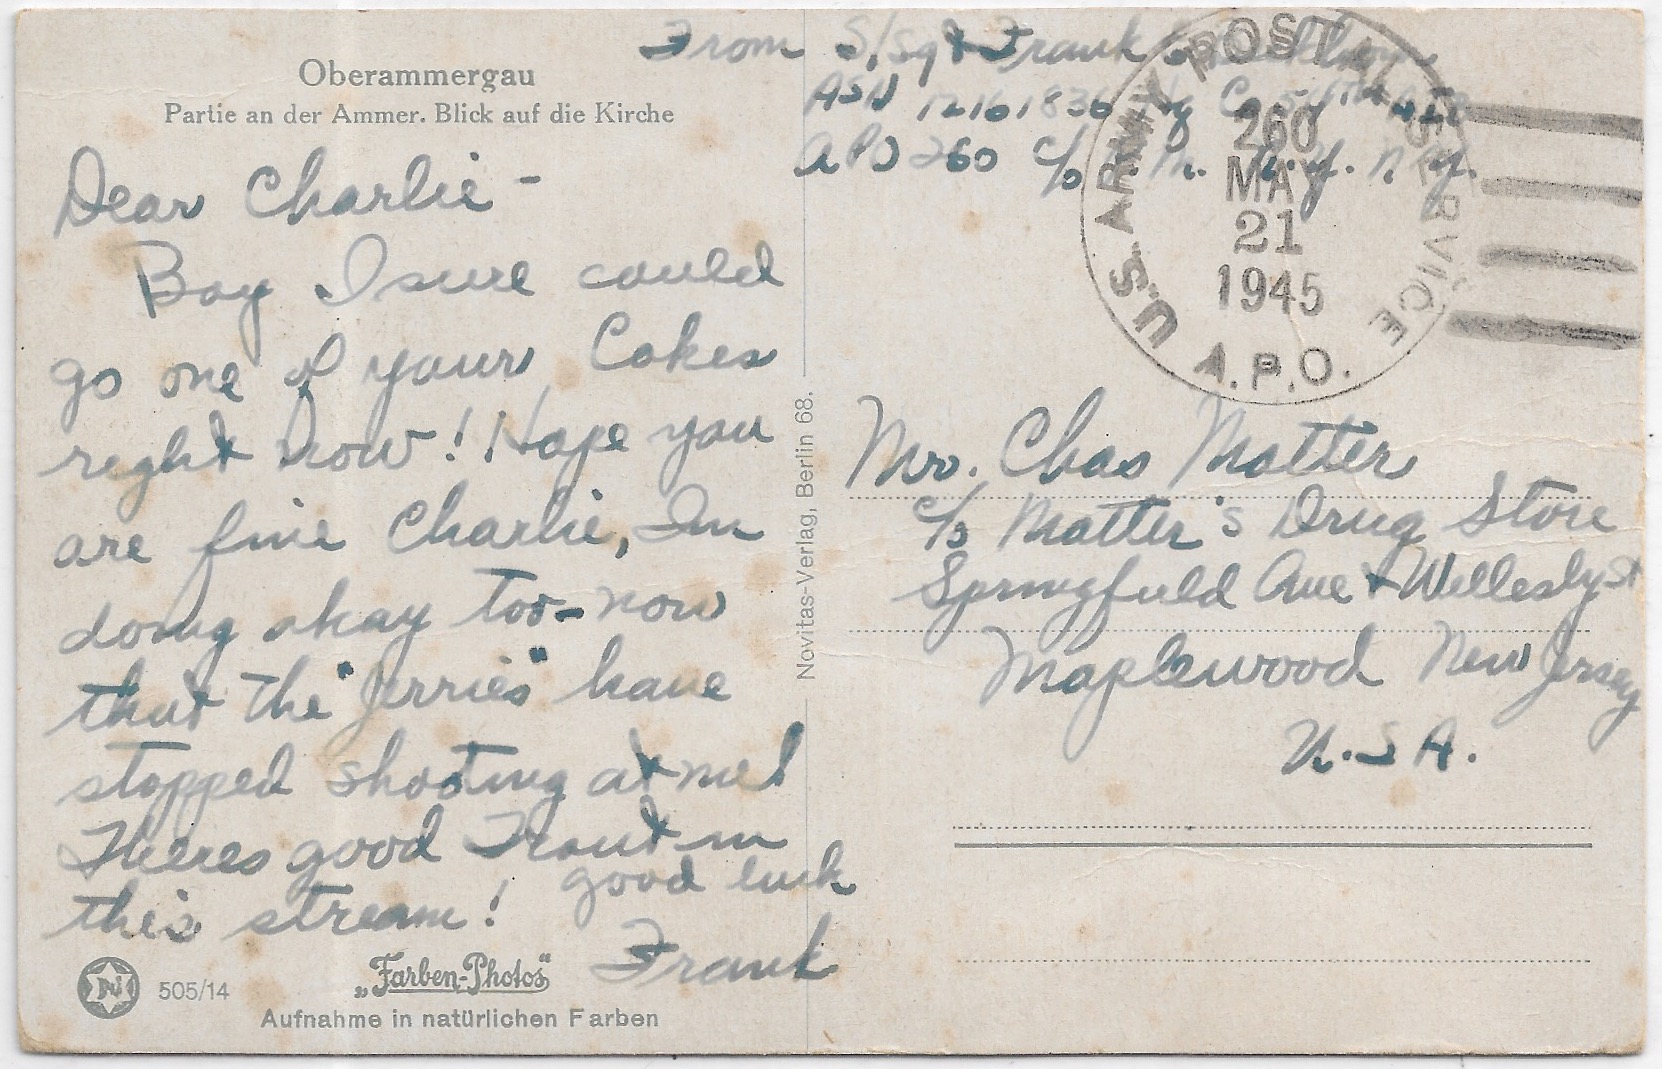 Oberammergau
Partie an der Ammer. Blick auf die Kirche
Dear Charlie -
Boy I sure could
go one of yours Cokes
right now! Hope you
are fine Charlie, Im
doing okay too - now
that the "Jerries" have
stopped shooting at me!
Theres good Trout in
this stream! good luck
Frank
N 505/14
„Farben-Photos"
Aufnahme in natürlichen Farben
Novitas-Verlag, Berlin 68.
From S/Sgt Frank
ASN 12161836 Hq Co
APO 260 c/o P.M. N.Y. N.Y.
U.S. ARMY POSTAL SERVICE
260
MAY
21
1945
A.P.O.
Mr. Chas Matter
c/o Matter's Drug Store
Springfield Ave & Wellesly St
Maplewood New Jersey
U.S.A.